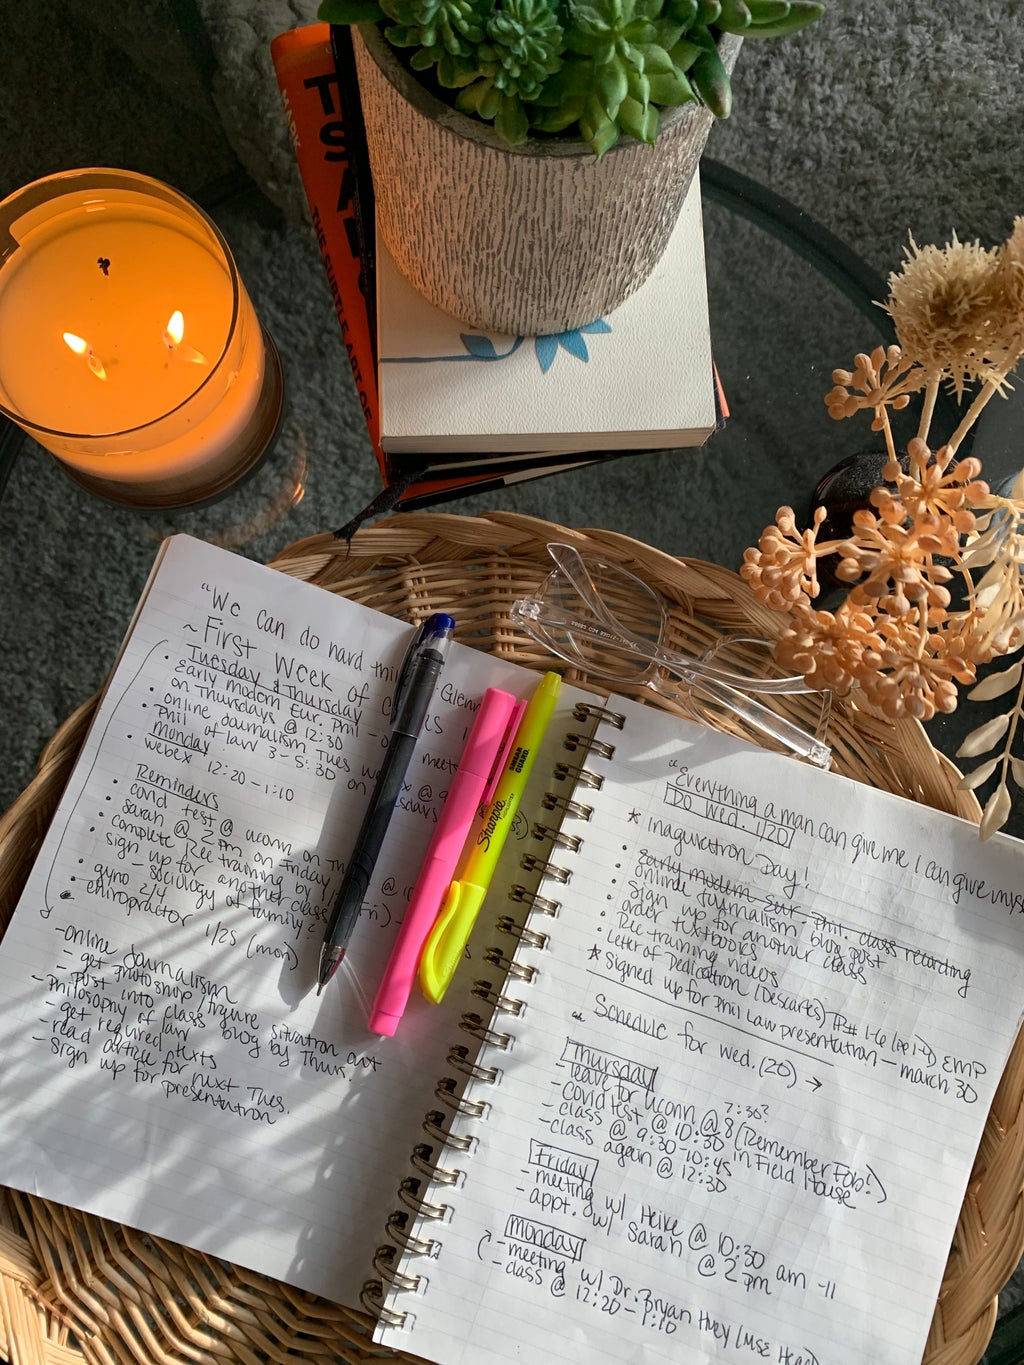 TSA
THE SUBTLE ART OF
"We can do hard
Glenn
~ First Week of
Tuesday & Thursday
Early modern Eur. Phil
meets
on Thursdays @ 12:30
online journalism Tues
Phil of law 3-5:30 on
monday
webex 12:20-1:10
Reminders
covid test @ uconn on
sarah @ 2pm on Friday
complete Rec training by
sign up for another class
- sociology of family?
gyno 2/4
chiropractor 1/25 (mon)
-online journalism
- get photoshop/figure situation out
- Post into class blog by Thurs.
-Philosophy of law
- get required texts
- read article for next Tues.
- sign up for presentation
Sharpie
SMEAR GUARD
"Everything a man can give me I can give mys
Do Wed. 1/20
* Inaguration Day!
Early modern Eur. Phil. class recording
online journalism blog post
sign up for another class
order textbooks
Rec training videos
Letter of Dedication (Descartes)
EMP
* signed up for Phil Law presentation - march 30
Schedule for wed. (20) →
Thursday
7:30?
-leave for uconn @ 8 (Remember Fob!)
-covid test @ 10:30 in Field House
-class @ 9:30-10:45
-class again @ 12:30
Friday
-meeting w/ Heike @ 10:30 am -11
-appt. w/ Sarah @ 2pm
monday
-meeting w/ Dr. Bryan Huey (MSE Head)
-class @ 12:20-1:10